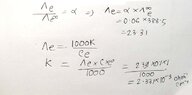 Λe/Λe∞ = α ⇒ Λe = α × Λe∞
= 0.06 × 388.5
= 23.31
Λe = 1000K/Ce
K = Λe × Ce/1000 = 2.331 × 10¹/1000
= 2.331 × 10⁻³ ohm⁻¹
cm⁻¹